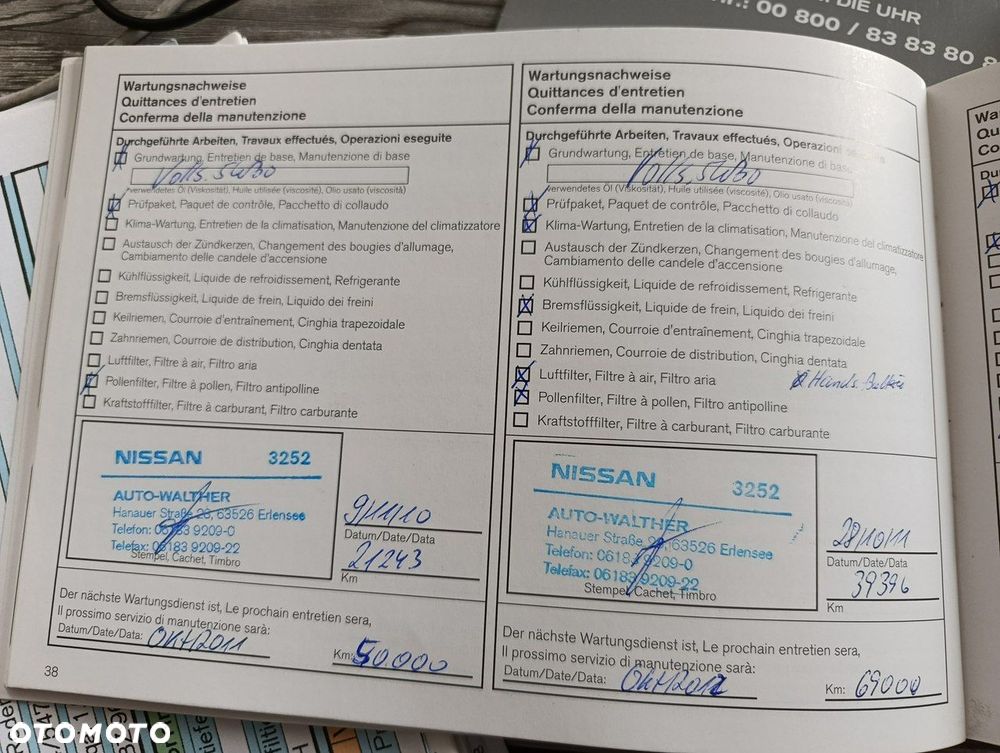 DIE UHR
00 800 / 83 83 80 8
Wartungsnachweise
Quittances d'entretien
Conferma della manutenzione
Durchgeführte Arbeiten, Travaux effectués, Operazioni eseguite
Grundwartung, Entretien de base, Manutenzione di base
Volls. 5W30
verwendetes Öl (Viskosität), Huile utilisée (viscosité), Olio usato (viscosità)
Prüfpaket, Paquet de contrôle, Pacchetto di collaudo
Klima-Wartung, Entretien de la climatisation, Manutenzione del climatizzatore
Austausch der Zündkerzen, Changement des bougies d'allumage,
Cambiamento delle candele d'accensione
Kühlflüssigkeit, Liquide de refroidissement, Refrigerante
Bremsflüssigkeit, Liquide de frein, Liquido dei freini
Keilriemen, Courroie d'entraînement, Cinghia trapezoidale
Zahnriemen, Courroie de distribution, Cinghia dentata
Luftfilter, Filtre à air, Filtro aria
Pollenfilter, Filtre à pollen, Filtro antipolline
Kraftstofffilter, Filtre à carburant, Filtro carburante
NISSAN 3252
AUTO-WALTHER
Hanauer Straße 29, 63526 Erlensee
Telefon: 06183 9209-0
Telefax: 06183 9209-22
Stempel, Cachet, Timbro
9/11/10
Datum/Date/Data
21243
Km
Der nächste Wartungsdienst ist, Le prochain entretien sera,
Il prossimo servizio di manutenzione sarà:
Datum/Date/Data: Okt/2011
Km: 50.000
38
Wartungsnachweise
Quittances d'entretien
Conferma della manutenzione
Durchgeführte Arbeiten, Travaux effectués, Operazioni eseguite
Grundwartung, Entretien de base, Manutenzione di base
Volls. 5W30
verwendetes Öl (Viskosität), Huile utilisée (viscosité), Olio usato (viscosità)
Prüfpaket, Paquet de contrôle, Pacchetto di collaudo
Klima-Wartung, Entretien de la climatisation, Manutenzione del climatizzatore
Austausch der Zündkerzen, Changement des bougies d'allumage,
Cambiamento delle candele d'accensione
Kühlflüssigkeit, Liquide de refroidissement, Refrigerante
Bremsflüssigkeit, Liquide de frein, Liquido dei freini
Keilriemen, Courroie d'entraînement, Cinghia trapezoidale
Zahnriemen, Courroie de distribution, Cinghia dentata
Luftfilter, Filtre à air, Filtro aria
Pollenfilter, Filtre à pollen, Filtro antipolline
Kraftstofffilter, Filtre à carburant, Filtro carburante
NISSAN 3252
AUTO-WALTHER
Hanauer Straße 29, 63526 Erlensee
Telefon: 06183 9209-0
Telefax: 06183 9209-22
Stempel, Cachet, Timbro
28/10/11
Datum/Date/Data
39396
Km
Der nächste Wartungsdienst ist, Le prochain entretien sera,
Il prossimo servizio di manutenzione sarà:
Datum/Date/Data: Okt/2012
Km: 69000
OTOMOTO